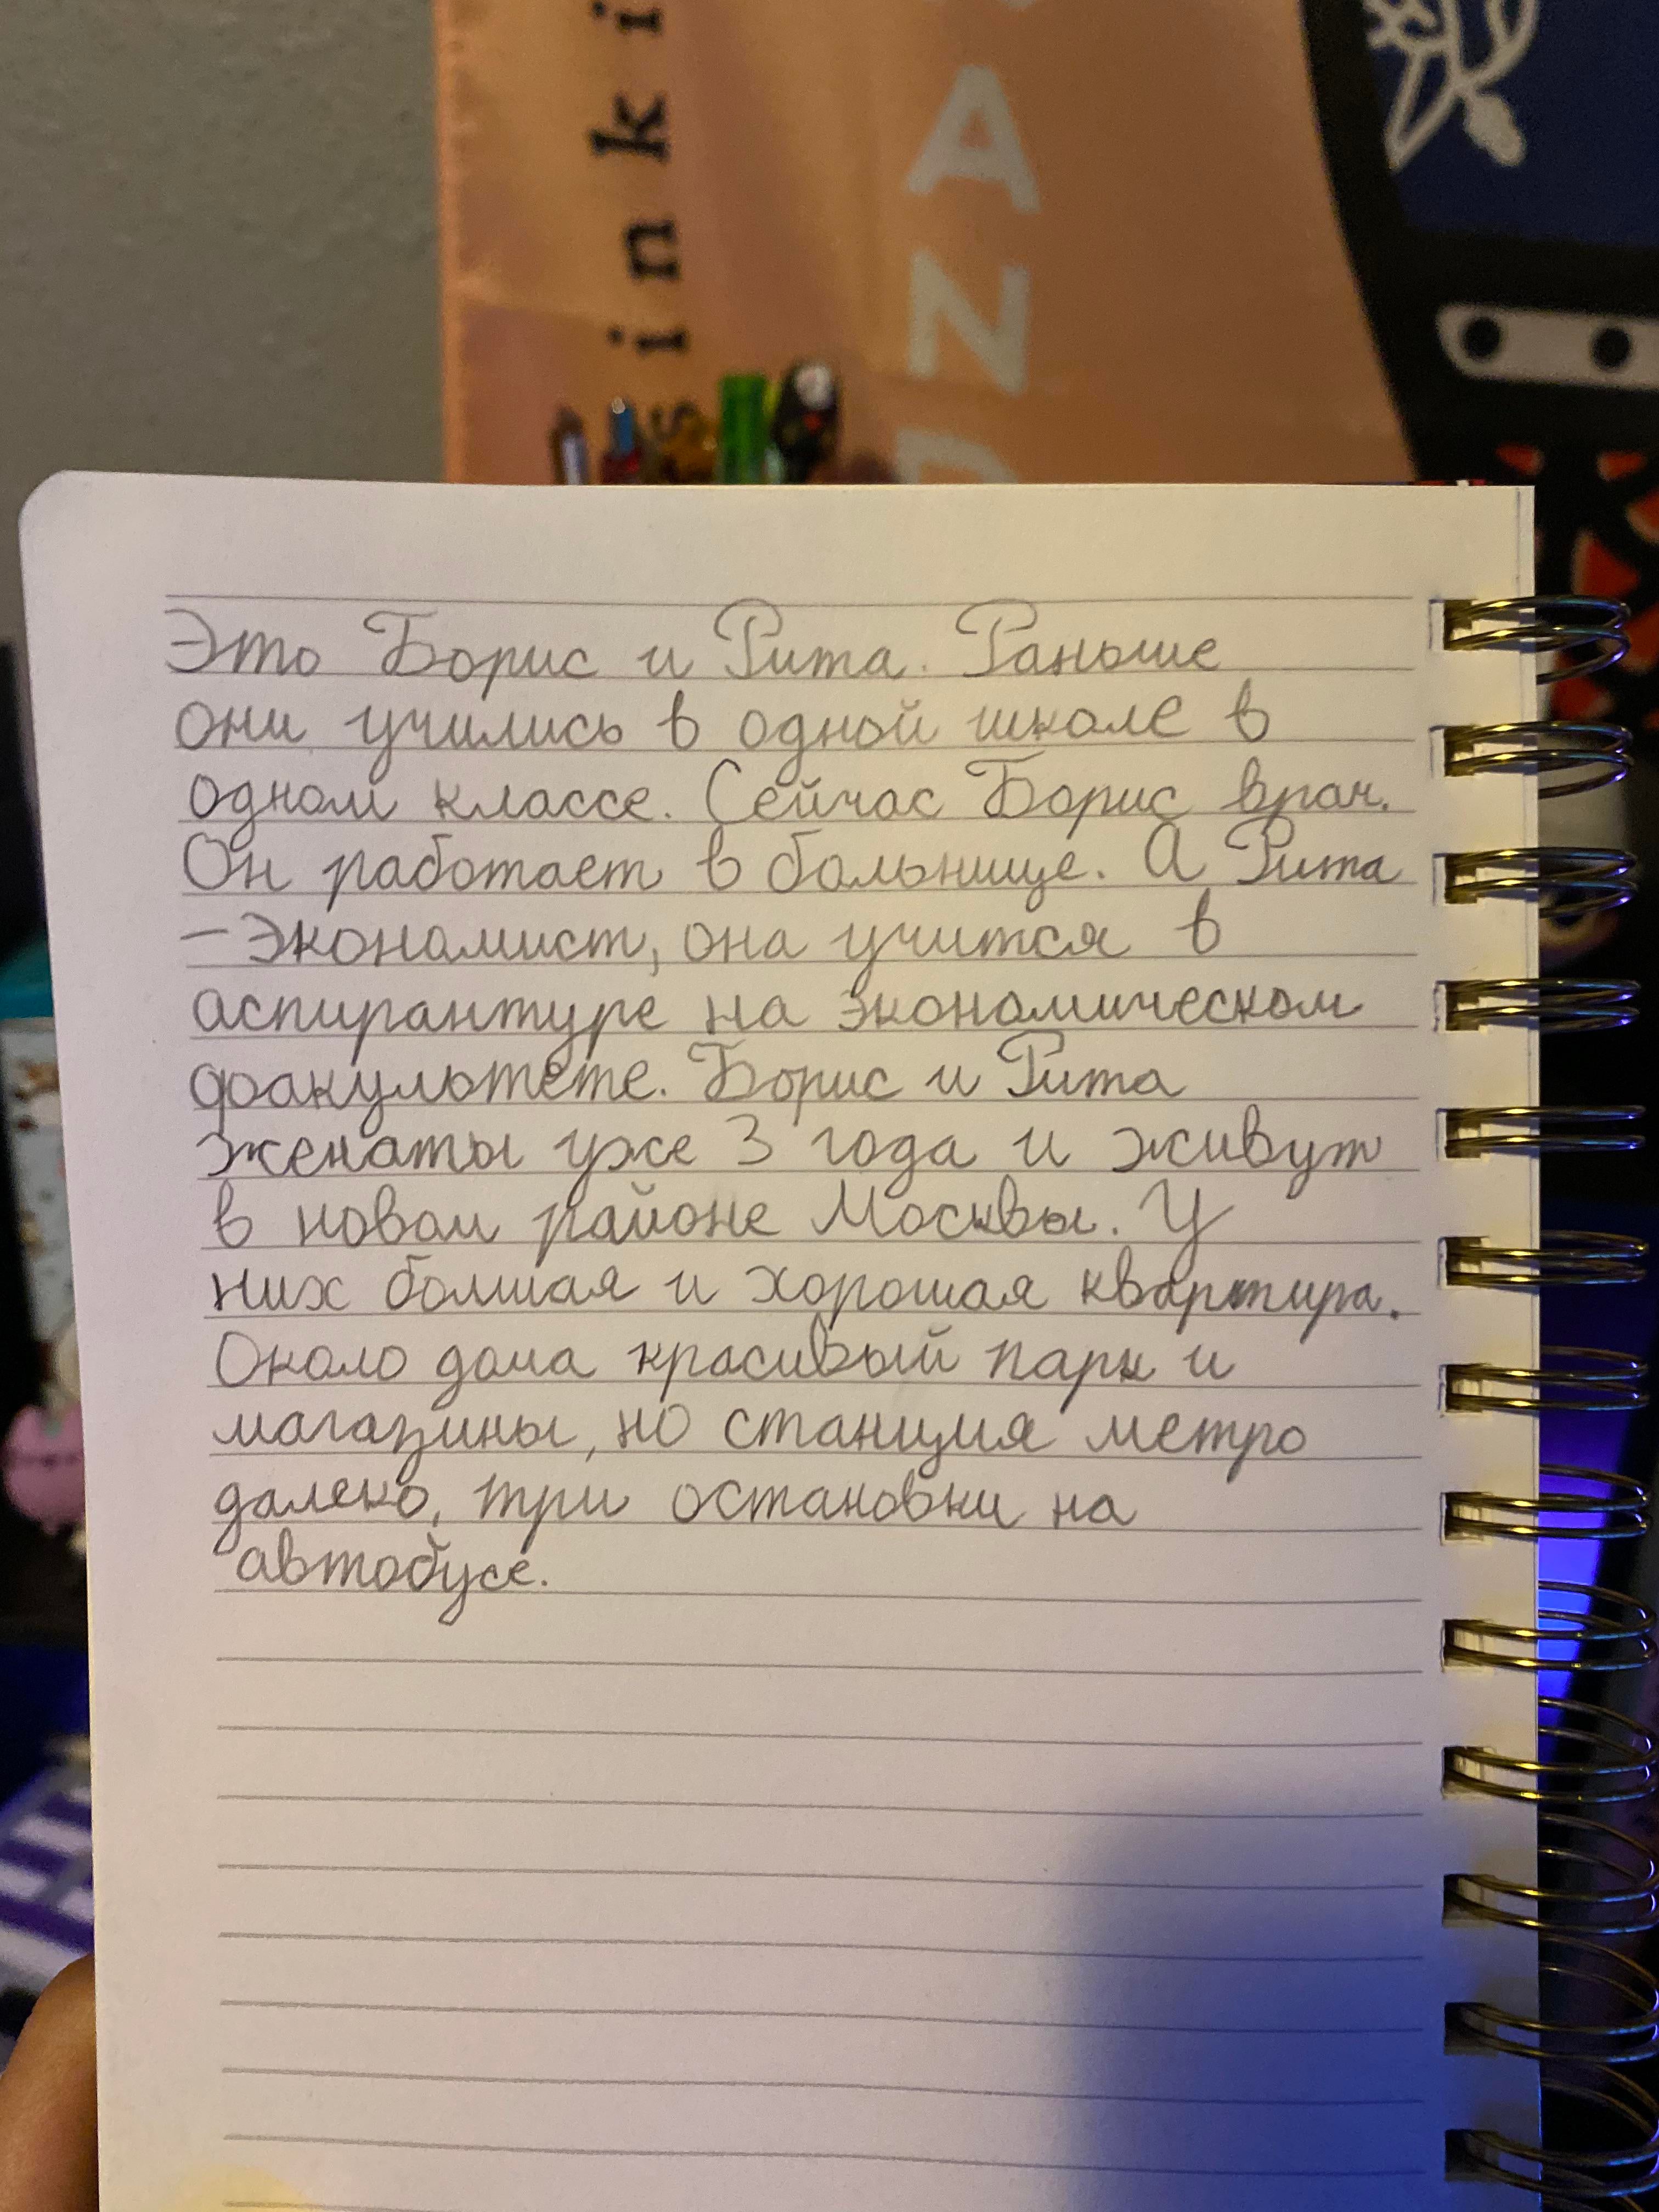 sinki
AND
Это Борис и Рита. Раньше
они учились в одной школе в
одном классе. Сейчас Борис врач.
Он работает в больнице. А Рита
– экономист, она учится в
аспирантуре на экономическом
факультете. Борис и Рита
женаты уже 3 года и живут
в новом районе Москвы. У
них болшая и хорошая квартира.
Около дома красивый парк и
магазины, но станция метро
далеко, три остановки на
автобусе.